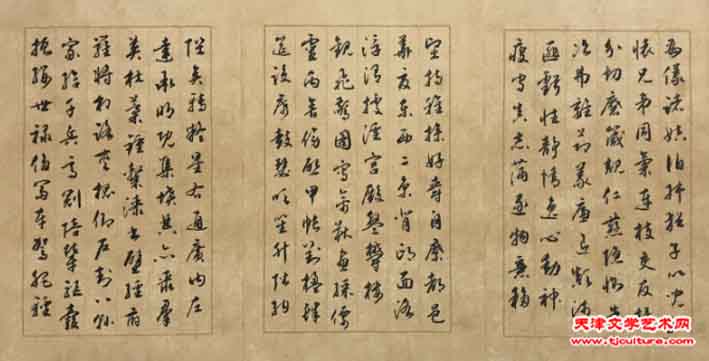 母儀諸姑伯叔猶子比兒
懷兄弟同氣連枝交友投
分切磨箴規仁慈隱惻造
次弗離節義廉退顛沛
匪虧性靜情逸心動神
疲守真志滿逐物意移
堅持雅操好爵自縻都邑
華夏東西二京背邙面洛
浮渭據涇宮殿盤鬱樓
觀飛驚圖寫禽獸畫彩仙
靈丙舍傍啟甲帳對楹肆
筵設席鼓瑟吹笙升階納
陛弁轉疑星右通廣內左
達承明既集墳典亦聚群
英杜稿鍾隸漆書壁經府
羅將相路俠槐卿戶封八縣
家給千兵高冠陪輦驅轂
振纓世祿侈富車駕肥輕
天津文学艺术网
www.tjculture.com